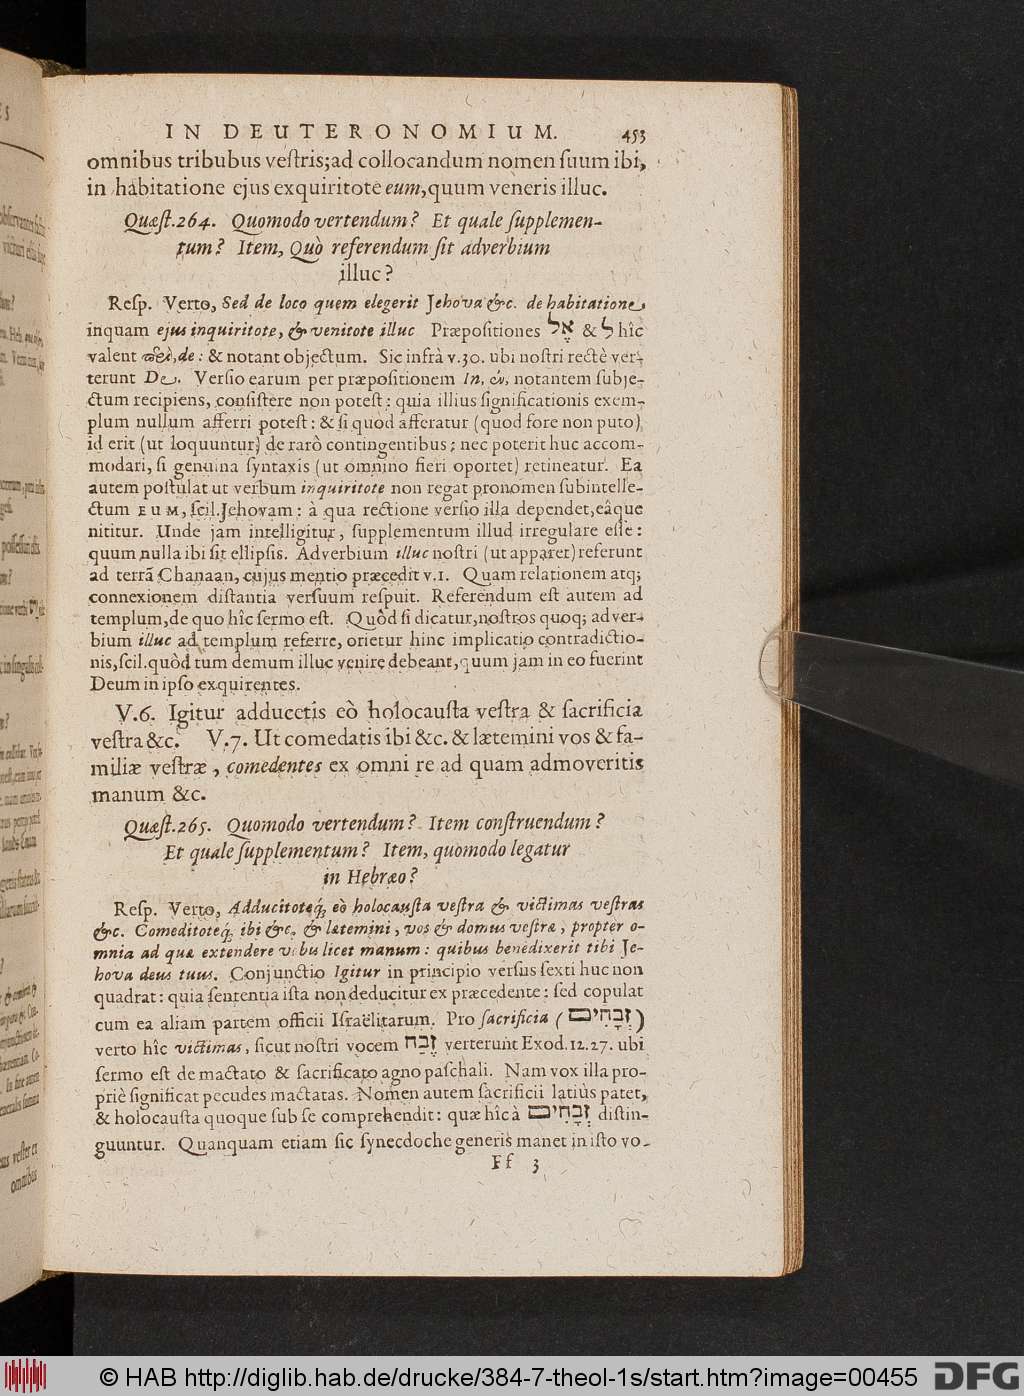 IN DEUTERONOMIUM. 453
omnibus tribubus veſtris; ad collocandum nomen ſuum ibi,
in habitatione ejus exquiritote eum, quum veneris illuc.
Quæſt. 264. Quomodo vertendum? Et quale ſupplemen-
tum? Item, Quò referendum ſit adverbium
illuc?
Reſp. Verto, Sed de loco quem elegerit Jehova &c. de habitatione
inquam ejus inquiritote, & venitote illuc Præpoſitiones אֶל & ל hîc
valent περὶ, de: & notant objectum. Sic infrà v.30. ubi noſtri rectè ver-
terunt De. Verſio earum per præpoſitionem In, ἐν, notantem ſubje-
ctum recipiens, conſiſtere non poteſt: quia illius ſignificationis exem-
plum nullum afferri poteſt: & ſi quòd afferatur (quod fore non puto)
id erit (ut loquuntur) de rarò contingentibus; nec poterit huc accom-
modari, ſi genuina ſyntaxis (ut omnino fieri oportet) retineatur. Ea
autem poſtulat ut verbum inquiritote non regat pronomen ſubintelle-
ctum EUM, ſcil. Jehovam: à qua rectione verſio illa dependet, eâque
nititur. Unde jam intelligitur, ſupplementum illud irregulare eſſe:
quum nulla ibi ſit ellipſis. Adverbium illuc noſtri (ut apparet) referunt
ad terrã Chanaan, cujus mentio præcedit v.1. Quam relationem atq;
connexionem diſtantia verſuum reſpuit. Referendum eſt autem ad
templum, de quo hîc ſermo eſt. Quòd ſi dicatur, noſtros quoq; adver-
bium illuc ad templum referre, orietur hinc implicatio contradictio-
nis, ſcil. quòd tum demum illuc venire debeant, quum jam in eo fuerint
Deum in ipſo exquirentes.
V.6. Igitur adducetis eò holocauſta veſtra & ſacrificia
veſtra &c. V.7. Ut comedatis ibi &c. & lætemini vos & fa-
miliæ veſtræ, comedentes ex omni re ad quam admoveritis
manum &c.
Quæſt. 265. Quomodo vertendum? Item conſtruendum?
Et quale ſupplementum? Item, quomodo legatur
in Hebræo?
Reſp. Verto, Adducitoteq́; eò holocauſta veſtra & victimas veſtras
&c. Comeditoteq́; ibi &c, & lætemini, vos & domus veſtræ, propter o-
mnia ad quæ extendere vobis licet manum: quibus benedixerit tibi Je-
hova deus tuus. Conjunctio Igitur in principio verſus ſexti huc non
quadrat: quia ſententia iſta non deducitur ex præcedente: ſed copulat
cum ea aliam partem officii Iſraëlitarum. Pro ſacrificia (זְבָחִים)
verto hîc victimas, ſicut noſtri vocem זֶבַח verterunt Exod. 12. 27. ubi
ſermo eſt de mactato & ſacrificato agno paſchali. Nam vox illa pro-
priè ſignificat pecudes mactatas. Nomen autem ſacrificii latiùs patet,
& holocauſta quoque ſub ſe comprehendit: quæ hîc à זְבָחִים diſtin-
guuntur. Quanquam etiam ſic ſynecdoche generis manet in iſto vo-
Ff 3
© HAB http://diglib.hab.de/drucke/384-7-theol-1s/start.htm?image=00455 DFG